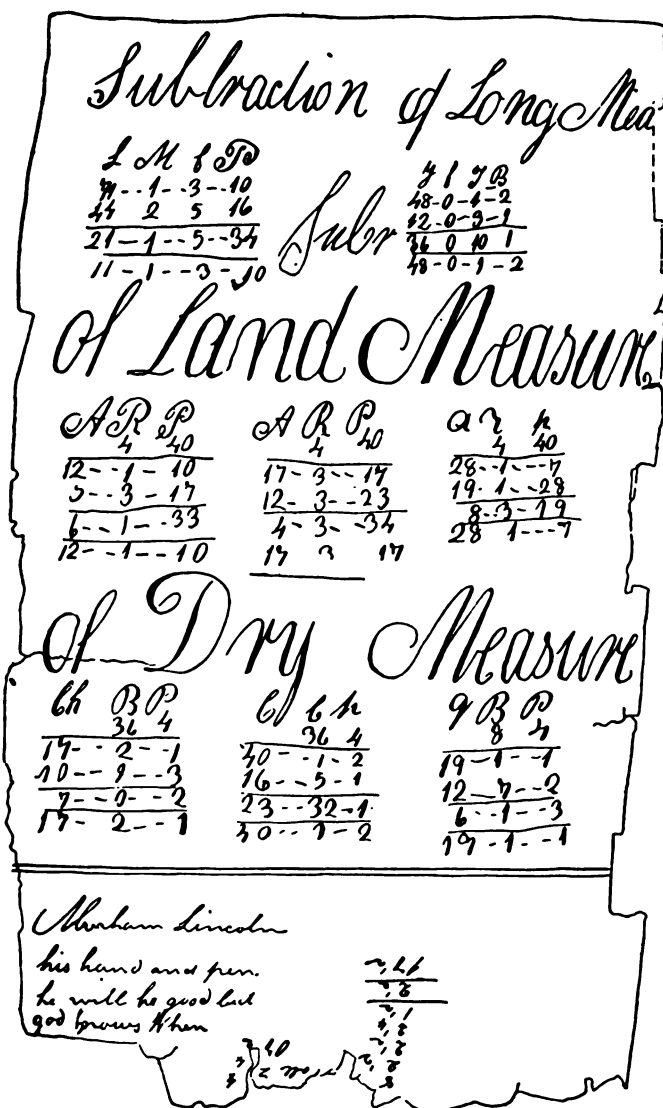 Subtraction of Long Mea
L M f P
1--3--10
44 2 5 16
21--1--5--34
11-1--3-10
Subr
Y f I B
48-0-1-2
12-0-3-1
36 0 10 1
48-0-1-2
of Land Measure
A R P
4 40
12--1-10
5--3-17
6--1--33
12--1--10
A R P
4 40
17-3--17
12-3--23
4-3--34
17 3 17
a r p
4 40
28--1---7
19-1--28
8-3-19
28 1--7
of Dry Measure
Ch B P
36 4
17--2--1
10--9--3
7--0--2
17-2--1
C b p
36 4
40--1-2
16--5-1
23--32-1
40--1-2
q B P
8 4
19-1--1
12--7--2
6-1--3
19-1--1
Abraham Lincoln
his hand and pen.
he will be good but
god knows When